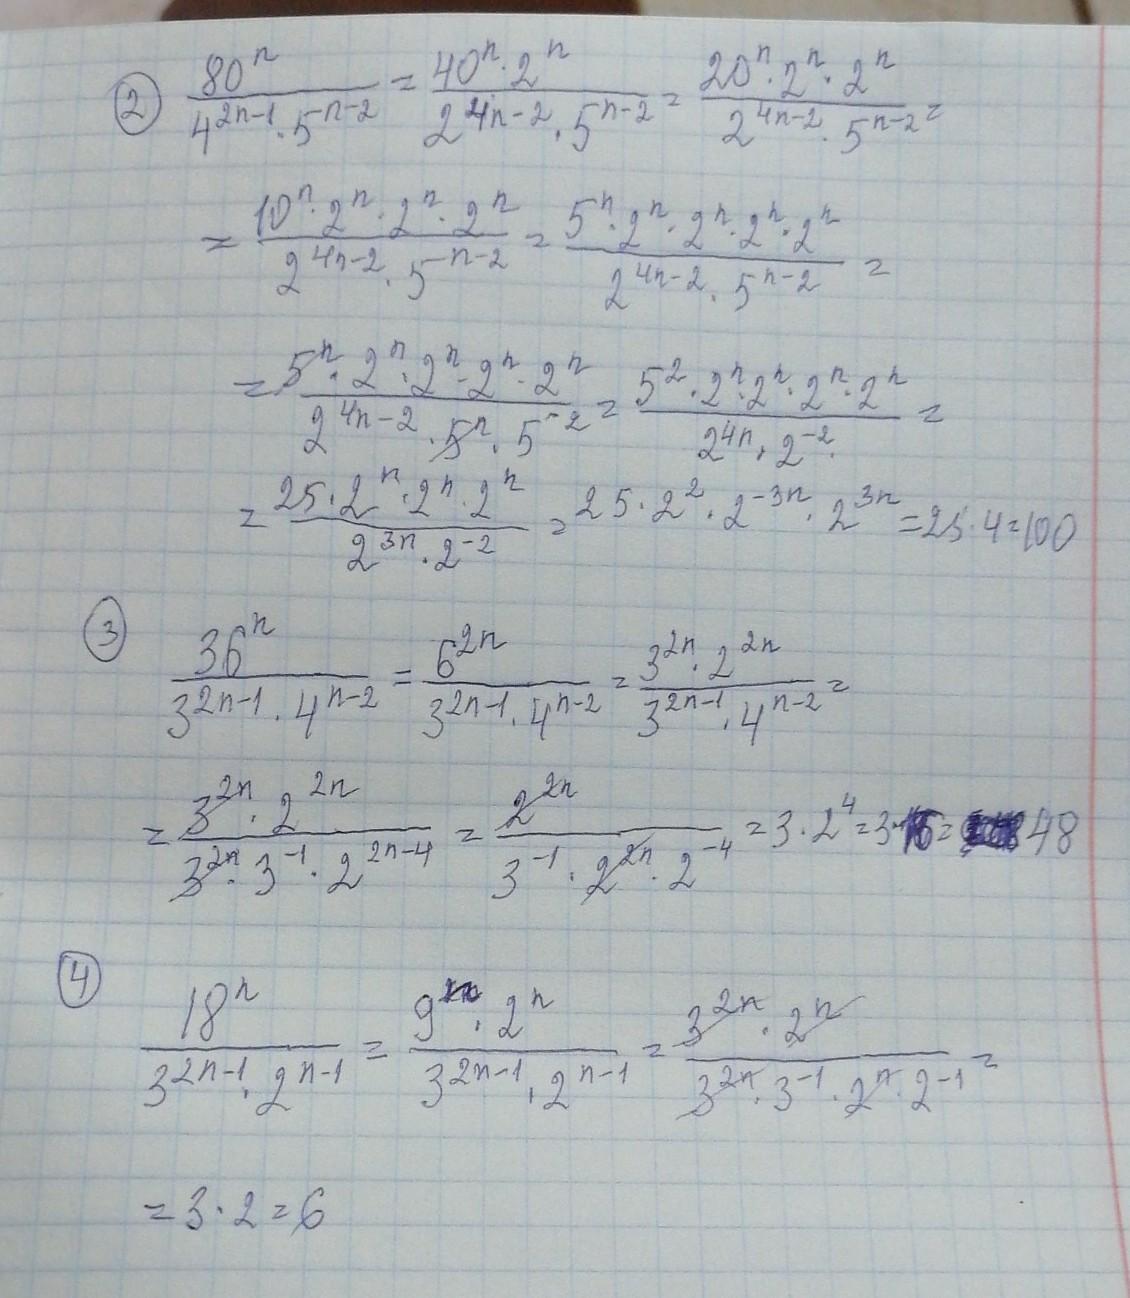 ② 80ⁿ/(4²ⁿ⁻¹·5ⁿ⁻²) = 40ⁿ·2ⁿ/(2⁴ⁿ⁻²·5ⁿ⁻²) = 20ⁿ·2ⁿ·2ⁿ/(2⁴ⁿ⁻²·5ⁿ⁻²) =
= 10ⁿ·2ⁿ·2ⁿ·2ⁿ/(2⁴ⁿ⁻²·5ⁿ⁻²) = 5ⁿ·2ⁿ·2ⁿ·2ⁿ·2ⁿ/(2⁴ⁿ⁻²·5ⁿ⁻²) =
= 5ⁿ·2ⁿ·2ⁿ·2ⁿ·2ⁿ/(2⁴ⁿ⁻²·5ⁿ·5⁻²) = 5²·2ⁿ·2ⁿ·2ⁿ·2ⁿ/(2⁴ⁿ·2⁻²·) =
= 25·2ⁿ·2ⁿ·2ⁿ/(2³ⁿ·2⁻²) = 25·2²·2⁻³ⁿ·2³ⁿ = 25·4=100
③ 36ⁿ/(3²ⁿ⁻¹·4ⁿ⁻²) = 6²ⁿ/(3²ⁿ⁻¹·4ⁿ⁻²) = 3²ⁿ·2²ⁿ/(3²ⁿ⁻¹·4ⁿ⁻²) =
= 3²ⁿ·2²ⁿ/(3²ⁿ·3⁻¹·2²ⁿ⁻⁴) = 2²ⁿ/(3⁻¹·2²ⁿ·2⁻⁴) = 3·2⁴=3·16= 48
④ 18ⁿ/(3²ⁿ⁻¹·2ⁿ⁻¹) = 9ⁿ·2ⁿ/(3²ⁿ⁻¹·2ⁿ⁻¹) = 3²ⁿ·2ⁿ/(3²ⁿ·3⁻¹·2ⁿ·2⁻¹) =
= 3·2=6